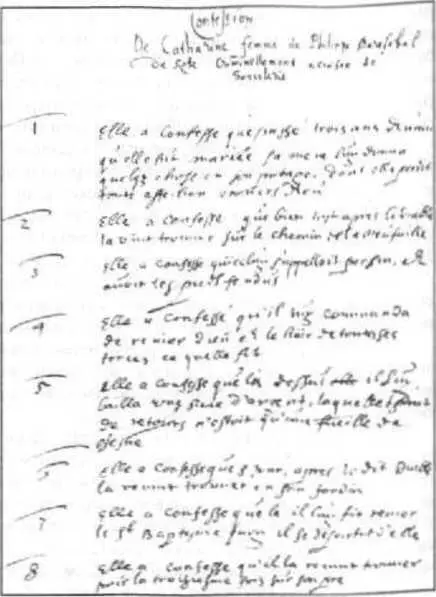 Confession
De Catharine femme de Philippe
de Criminellement accusée de
Sorcelerie
1 Elle a Confessé que passé trois ans
qu'elle fut mariée sa mere luy donna
quelq chose en son potage, dont elle perdit
toute affection envers Dieu
2 Elle a confessé que bien tost apres le diable
la vint trouver sur le chemin de la
3 Elle a confessé que celui s'appelloit et
avoit les pieds fendus
4 Elle a Confessé qu'il luy commanda
de renier dieu et le haïr de toutes ses
forces ce quelle fit
5 elle a confessé que la dessus il luy
bailla une piece d'argent, laquelle
de retour n'estoit qu'une fueille de
chesne
6 Elle a Confessé que apres le dit Diable
la revint trouver en son Jardin
7 Elle a confessé que la il luy fit renier
le St Baptesme puis il se departit d'elle
8 Elle a Confessé qu'il la revint trouver
pour la troisiesme fois sur son pre